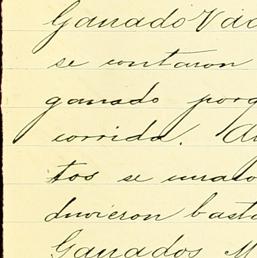 Ganado Vac
se contaron
ganado porq
corrida.
tos se
duvieron basta
Ganados M